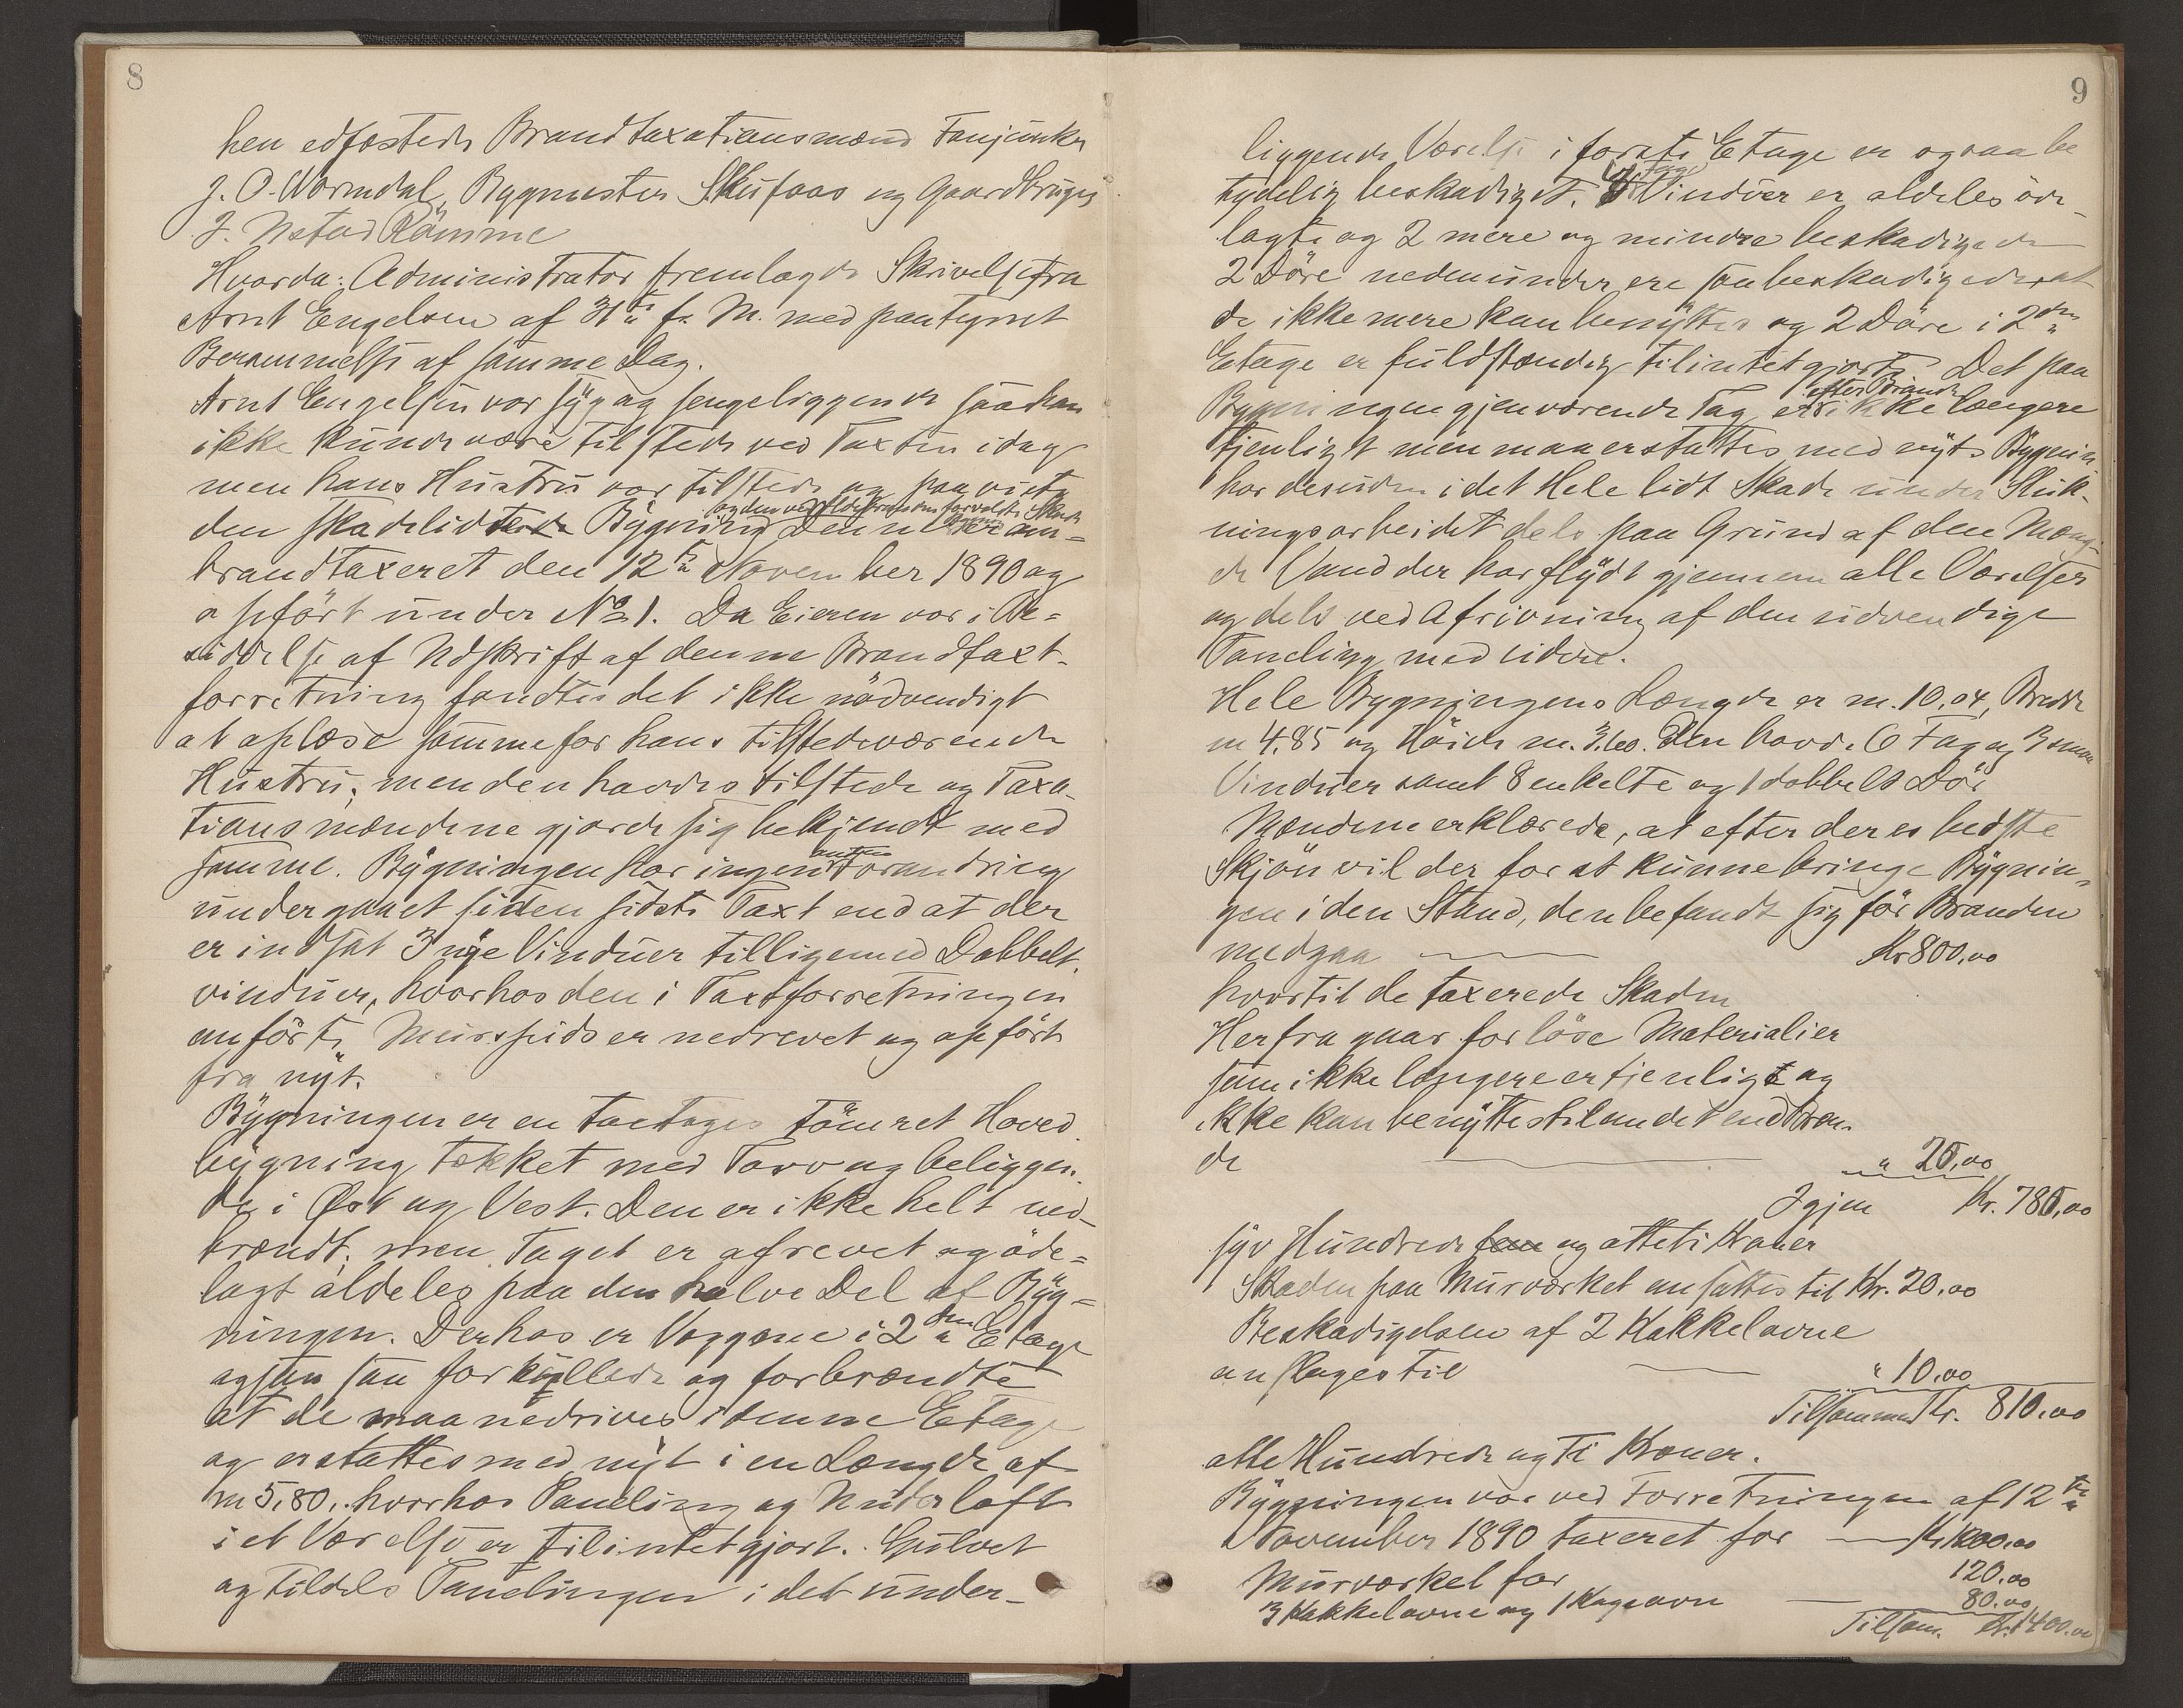 8
hen edfæstede Brandtaxationsmænd Fanjunker
J. O. Wormdal, Bygmester Skufaas og Gaardbruger
J. Nstad Römme
Hvorda: Administrator fremlagde Skrivelse fra
Arnt Engelsen af 31te f. M. med paategnet
Berammelse af samme Dag.
Arnt Engelsen var syg og sengeliggende saa han
ikke kunde være tilstede ved Taxten idag
men hans Hustru var tilstede og paaviste
og den ved Ildebranden forvoldte Skade
den skadelidte Bygning Denne er an-
brandtaxeret den 12te November 1890 og
opfört under No 1. Da Eieren var i Be-
siddelse af Udskrift af denne Brandtaxt-
forretning fandtes det ikke nödvendigt
at oplæse samme for hans tilstedeværende
Hustru, men den havdes tilstede og Taxa-
tionsmændene gjorde sig bekjendt med
samme. Bygningen har ingen anden Forandring
undergaaet siden sidste Taxt end at der
er indsat 3 nye Vinduer tilligemed Dobbelt-
vinduer, hvorhos den i Taxtforretningen
anförte Murspids er nedrevet og opfört
fra nyt.
Bygningen er en toetages tömret Hoved-
bygning tækket med Torv og beliggen-
de i Øst og Vest. Den er ikke helt ned-
brændt, men Taget er afrevet og öde-
lagt aldeles paa den halve Del af Byg-
ningen. Derhos er Væggene i 2den Etage
ogsaa saa forkullede og forbrændte
at de maa nedrives i denne Etage
og erstattes med nyt i en Længde af
m 5,80, hvorhos Paneling og Underloft
i et Værelse er tilintetgjort. Gulvet
og tildels Panelingen i det under-
9
liggende Værelse i förste Etage er ogsaa be
tydelig beskadiget. 4 Fags Vinduer er aldeles öde-
lagte og 2 mere og mindre beskadigede
2 Döre nedenunder ere saa beskadigede at
de ikke mere kan benyttes og 2 Döre i 2den
Etage er fuldstændig tilintetgjorte Det paa
Bygningen gjenværende Tag er efter Brande ikke længere
tjenligt men maa erstattes med nyt. Bygnin
har desuden i det Hele lidt Skade under Sluk-
ningsarbeidet dels paa Grund af den Mæng-
de Vand der har flydt gjennem alle Værelser
og dels ved Afrivning af den udvendige
Paneling med videre.
Hele Bygningens Længde er m. 10.04, Bredde
m 4.85 og Höide m. 3.60. Den havde 6 Fag og 3 smaa
Vinduer samt 8 enkelte og 1 dobbelt Dör
Mændene erklærede, at efter deres bedste
Skjön vil der for at kunne bringe Bygnin-
gen i den Stand, den befandt sig för Branden
medgaa Kr 800,00
hvortil de taxerede Skaden
Herfra gaar for löse Materialier
som ikke længere er tjenligt og
ikke kan benyttes til andet end Bræn-
de " 20,00
Igjen Kr. 780,00
syv Hundrede fem og otteti Kroner
Skaden paa Murværket ansættes til Kr. 20.00
Beskadigelsen af 2 Kakkelovne
anslages til " 10.00
Tilsammen Kr. 810.00
otte Hundrede og Ti Kroner.
Bygningen var ved Forretningen af 12te
November 1890 taxeret for Kr 1200.00
Murværket for 120.00
3 Kakkelovne og 1 Kogeovn 80.00
Tilsam. Kr. 1400.00